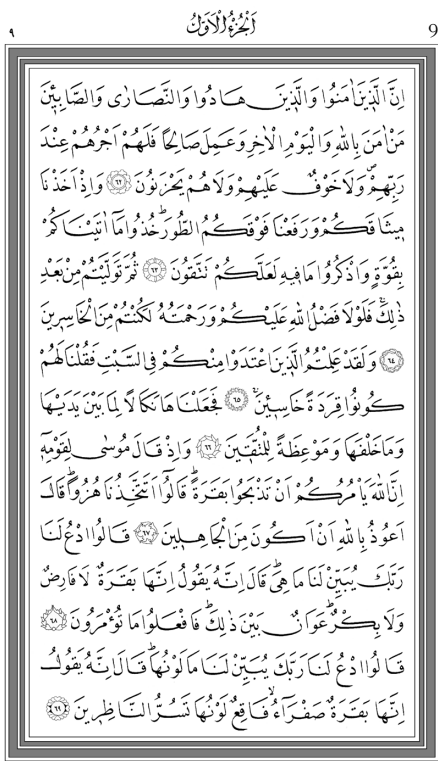 ٩ اَلْجُزْءُ الْاَوَّلُ 9
اِنَّ الَّذٖينَ اٰمَنُوا وَالَّذٖينَ هَادُوا وَالنَّصَارٰى وَالصَّابِـٖٔينَ
مَنْ اٰمَنَ بِاللّٰهِ وَالْيَوْمِ الْاٰخِرِ وَعَمِلَ صَالِحاً فَلَهُمْ اَجْرُهُمْ عِنْدَ
رَبِّهِمْۖ وَلَا خَوْفٌ عَلَيْهِمْ وَلَا هُمْ يَحْزَنُونَ ﴿٦٢﴾ وَاِذْ اَخَذْنَا
مٖيثَاقَكُمْ وَرَفَعْنَا فَوْقَكُمُ الطُّورَۜ خُذُوا مَٓا اٰتَيْنَاكُمْ
بِقُوَّةٍ وَاذْكُرُوا مَا فٖيهِ لَعَلَّكُمْ تَتَّقُونَ ﴿٦٣﴾ ثُمَّ تَوَلَّيْتُمْ مِنْ بَعْدِ
ذٰلِكَۚ فَلَوْلَا فَضْلُ اللّٰهِ عَلَيْكُمْ وَرَحْمَتُهُ لَكُنْتُمْ مِنَ الْخَاسِرٖينَ
﴿٦٤﴾ وَلَقَدْ عَلِمْتُمُ الَّذٖينَ اعْتَدَوْا مِنْكُمْ فِي السَّبْتِ فَقُلْنَا لَهُمْ
كُونُوا قِرَدَةً خَاسِـٖٔينَۚ ﴿٦٥﴾ فَجَعَلْنَاهَا نَكَالاً لِمَا بَيْنَ يَدَيْهَا
وَمَا خَلْفَهَا وَمَوْعِظَةً لِلْمُتَّقٖينَ ﴿٦٦﴾ وَاِذْ قَالَ مُوسٰى لِقَوْمِهٖٓ
اِنَّ اللّٰهَ يَأْمُرُكُمْ اَنْ تَذْبَحُوا بَقَرَةًۜ قَالُٓوا اَتَتَّخِذُنَا هُزُواًۜ قَالَ
اَعُوذُ بِاللّٰهِ اَنْ اَكُونَ مِنَ الْجَاهِلٖينَ ﴿٦٧﴾ قَالُوا ادْعُ لَنَا
رَبَّكَ يُبَيِّنْ لَنَا مَا هِيَۜ قَالَ اِنَّهُ يَقُولُ اِنَّهَا بَقَرَةٌ لَا فَارِضٌ
وَلَا بِكْرٌۜ عَوَانٌ بَيْنَ ذٰلِكَۜ فَافْعَلُوا مَا تُؤْمَرُونَ ﴿٦٨﴾
قَالُوا ادْعُ لَنَا رَبَّكَ يُبَيِّنْ لَنَا مَا لَوْنُهَاۜ قَالَ اِنَّهُ يَقُولُ
اِنَّهَا بَقَرَةٌ صَفْرَٓاءُۙ فَاقِعٌ لَوْنُهَا تَسُرُّ النَّاظِرٖينَ ﴿٦٩﴾